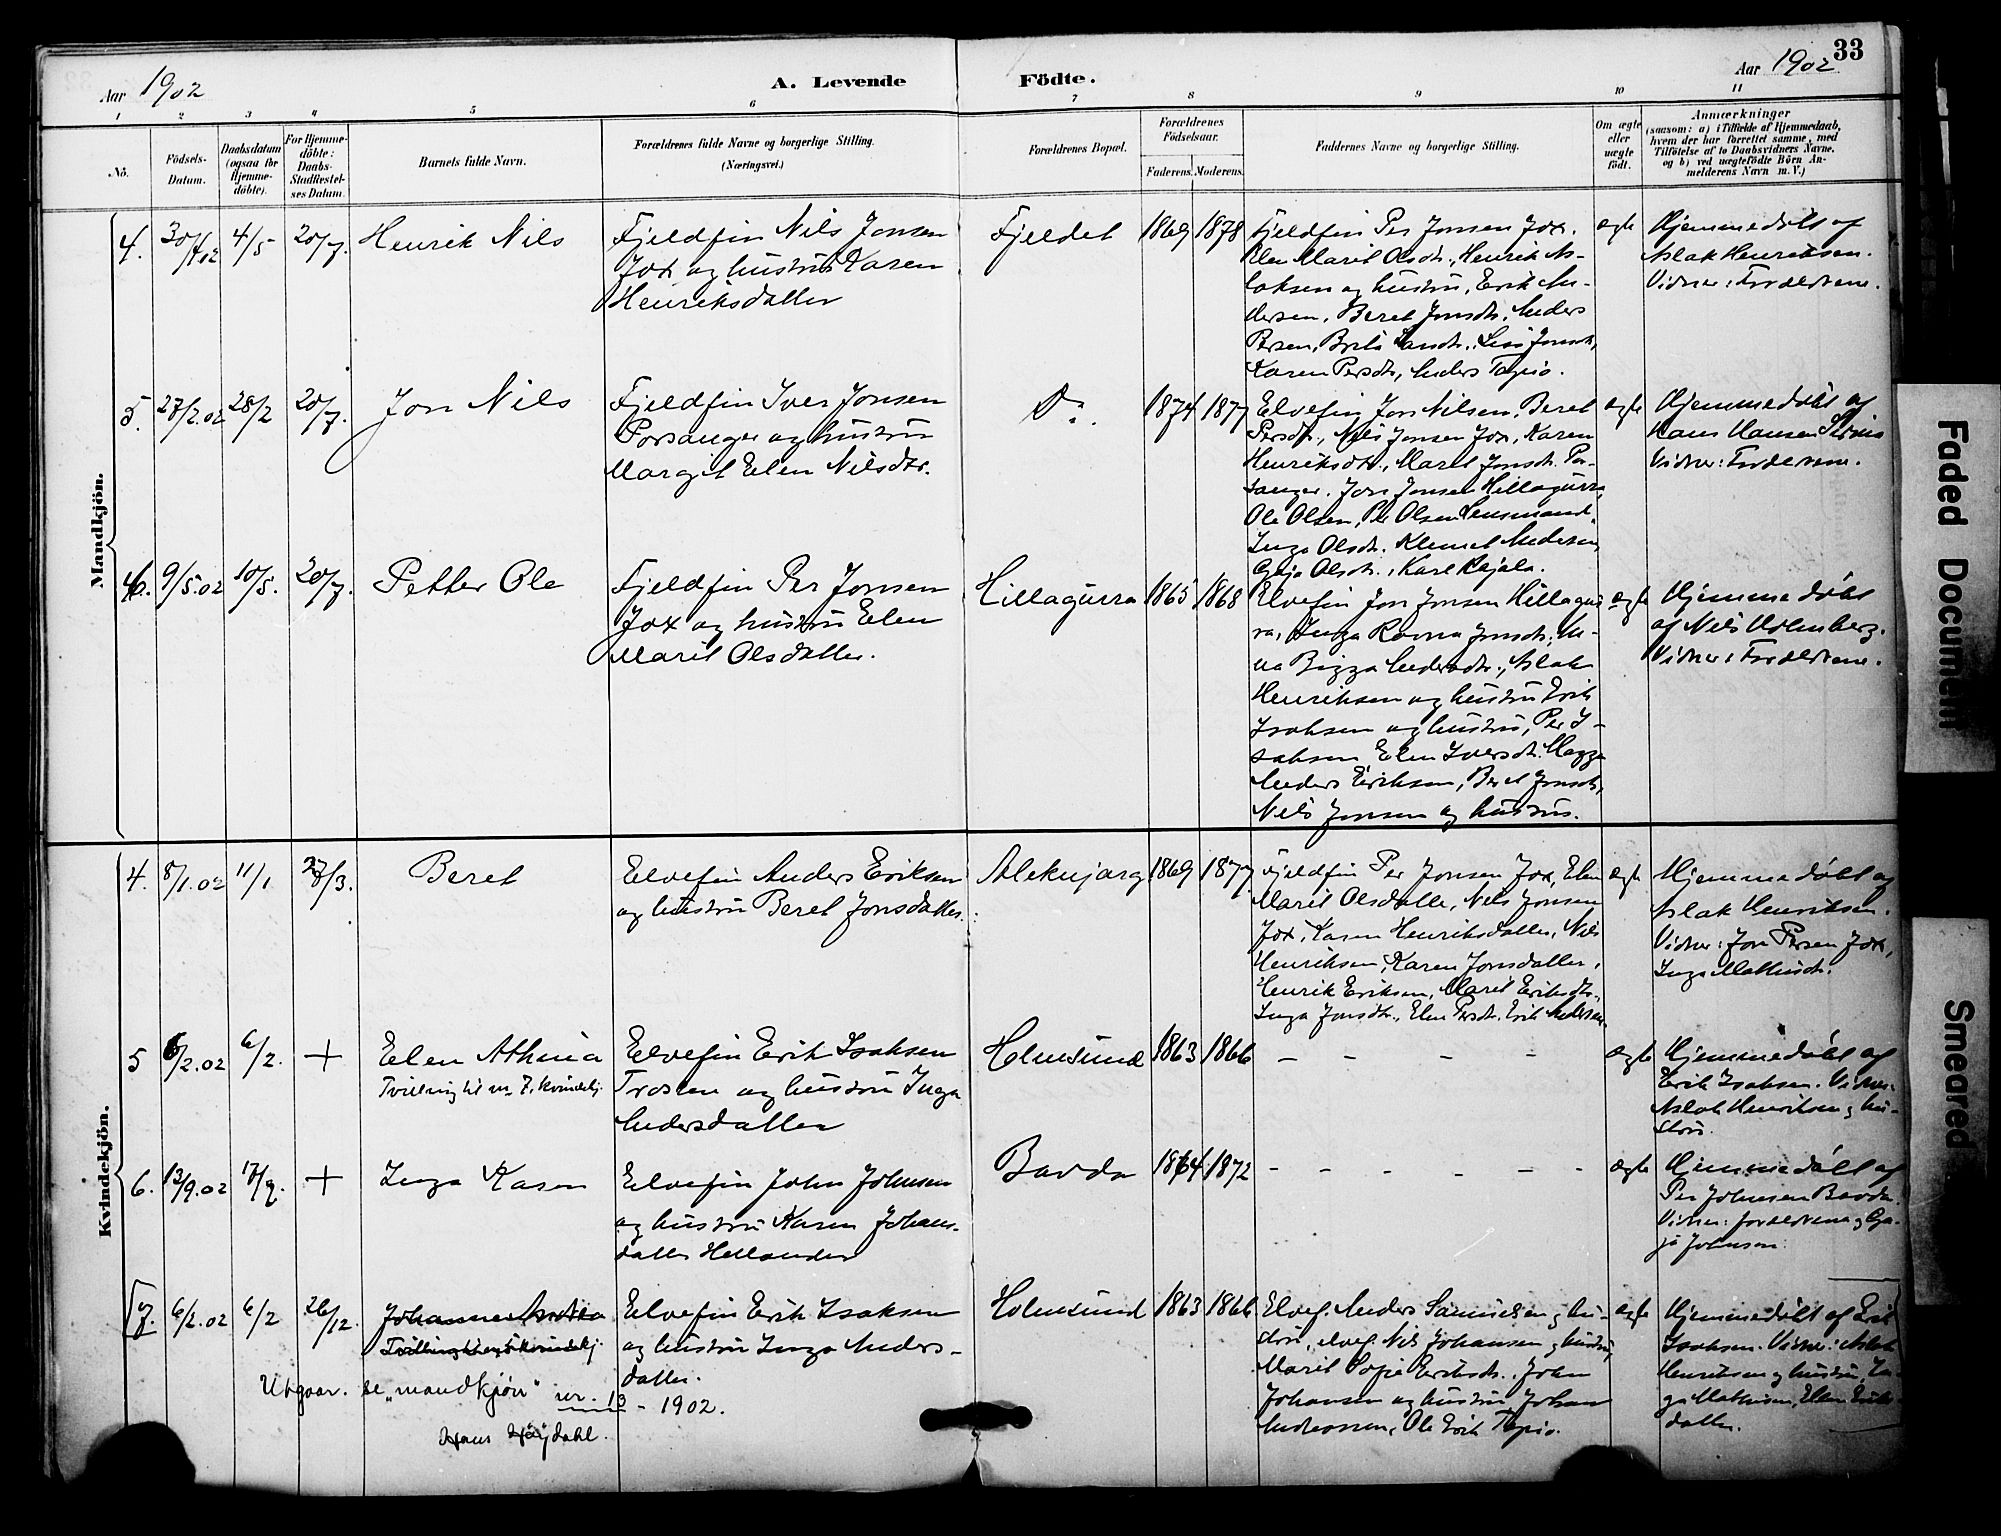 33
Aar 1902
A. Levende Födte.
Aar 1902
1 2 3 4 5 6 7 8 9 10 11
No.
Födsels-
Datum.
Daabsdatum
(ogsaa for
Hjemme-
döbte).
For Hjemme-
döbte:
Daabs-
Stadfæstel-
ses Datum.
Barnets fulde Navn.
Forældrenes fulde Navne og borgerlige Stilling.
(Næringsvei.)
Forældrenes Bopæl.
Forældrenes
Födselsaar.
Faderens. Moderens.
Faddernes Navne og borgerlige Stilling.
Om ægte
eller
uægte
födt.
Anmærkninger
(saasom: a) i Tilfælde af Hjemmedaab,
hvem der har forrettet samme, med
Tilföielse af to Daabsvidners Navne.
og b) ved uægtefödte Börn An-
melderens Navn m. V.)
Mandkjön.
4. 30/4 02 4/5 20/7. Henrik Nils
Fjeldfin Nils Jonsen
Jox og hustru Karen
Henriksdatter
Fjeldet 1869 1878
Fjeldfin Per Jonsen Jox.
Elen Marit Olsdt., Henrik As-
laksen og hustru, Erik An-
dersen, Beret Jonsdt. Anders
Persen, Lisa Jonsdt,
Karen Persdt, Anders Tapio.
ægte
Hjemmedøbt af
Aslak Henriksen.
Vidner: Forældrene.
5. 27/2.02 28/2 20/7. Jon Nils
Fjeldfin Iver Jonsen
Porsanger og hustru
Margit Elen Nilsdtr.
Do. 1874 1877
Elvefin Jon Nilsen, Beret
Persdt., Nils Jonsen Jox, Karen
Henriksdt., Marit Jonsdt. Por-
sanger. Jon Jonsen Hillagurra,
Ole Olsen, Per Olsen Lensmand,
Inga Olsdt. Klemet Andersen,
Gaja Olsdt., Karl Rajala.
ægte
Hjemmedøbt af
Hans Hansen
Vidner: Forældrene.
6. 9/5.02 10/5. 20/7. Petter Ole
Fjeldfin Per Jonsen
Jox og hustru Elen
Marit Olsdatter.
Hillagurra 1865 1868
Elvefin Jon Jonsen Hillagur-
ra, Inga Ravna Jonsdt., An-
na Bigga Andersdt., Aslak
Henriksen og hustru Erik
Isaksen og hustru, Per I-
saksen Elen Iversdt. Magga
Anders Eriksen, Beret Jonsdt,
Nils Jonsen og hustru.
ægte
Hjemmedøbt
af Nils Holmberg.
Vidner: Forældrene.
Kvindekjön.
4. 8/1.02 11/1 28/3. Beret
Elvefin Anders Eriksen
og hustru Beret Jonsdatter.
Aleknjarg 1869 1877
Fjeldfin Per Jonsen Jox, Elen
Marit Olsdatter, Nils Jonsen
Jox, Karen Henriksdatter, Nils
Henriksen, Karen Jonsdatter,
Henrik Eriksen, Marit Eriksdt.,
Inga Jonsdt., Elen Persdt. Erik Andersen.
ægte
Hjemmedøbt af
Aslak Henriksen.
Vidner: Jon Persen Jox,
Inga Mathisdt.
5 6/2.02 6/2. + Elen Athina
Tvilling til nr 7. kvindekj.
Elvefin Erik Isaksen
Trosten og hustru Inga
Andersdatter
Holmsund 1863 1866 – – – –
ægte
Hjemmedøbt af
Erik Isaksen. Vidner:
Aslak Henriksen og hu-
stru.
6. 13/9.02 17/9. + Inga Karen
Elvefin John Johnsen
og hustru Karen Johans-
datter Hellander
Bavda 1864 1872 – – – – – –
ægte
Hjemmedøbt af
Per Johnsen Bavda
Vidner: forældrene og Ga-
ja Johnsen.
7. 6/2.02 6/2 26/12. Johanne
Tvilling til nr 5 kvindekj.
Elvefin Erik Isaksen
og hustru Inga Anders-
datter.
Holmsund 1863 1866
Elvef. Anders Samuelsen og hu-
stru, elvef. Nils Johansen og hustru,
Marit Sofie Eriksdt., John
Johansen og hustru, Johan
Andreassen, Ole Erik Tapio.
ægte
Hjemmedøbt af Erik
Isaksen. Vidner: Aslak
Henriksen og hustru, In-
ga Mathisen, Elen Eriks-
datter.
Utgaar. se „mandkjøn" nr. 13 – 1902.
Hans Høydahl.
Faded Document
Smeared